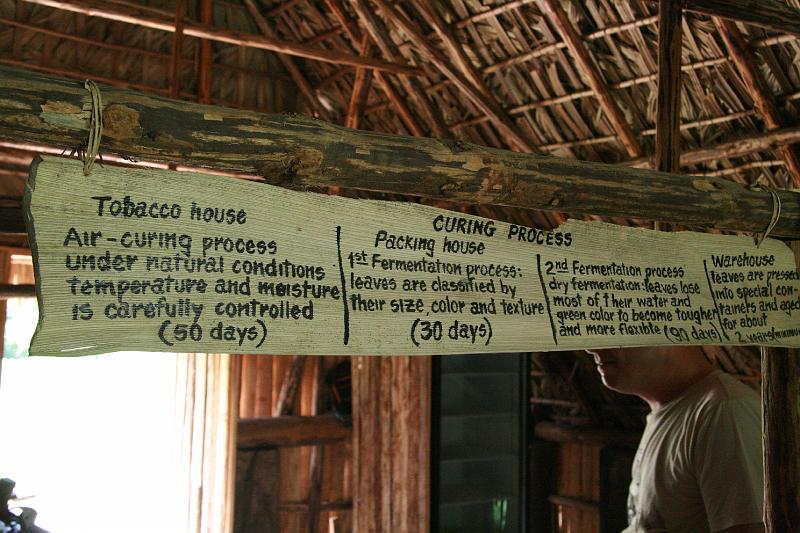 Tobacco house
Air-curing process
under natural conditions
temperature and moisture
is carefully controlled
(50 days)
CURING PROCESS
Packing house
1st Fermentation process:
leaves are classified by
their size, color and texture
(30 days)
2nd Fermentation process
dry fermentation: leaves lose
most of their water and
green color to become tougher
and more flexible (90 days)
Warehouse
leaves are pressed
into special con-
tainers and aged
for about
2 years/minimum